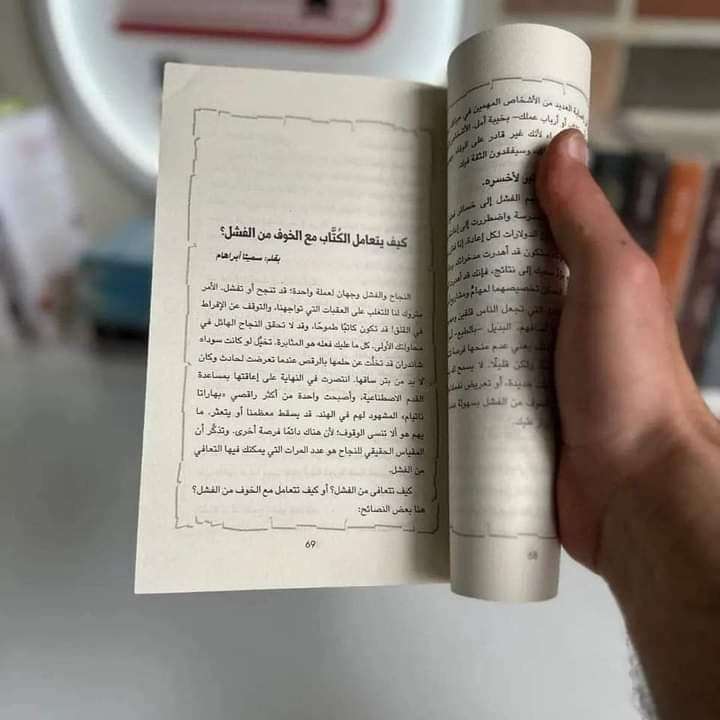 كيف يتعامل الكُتَّاب مع الخوف من الفشل؟
بقلم: سميتا أبراهام
النجاح والفشل وجهان لعملة واحدة؛ قد تنجح أو تفشل. الأمر
متروك لنا للتغلب على العقبات التي تواجهنا، والتوقف عن الإفراط
في القلق! قد تكون كاتبًا طموحًا، وقد لا تحقق النجاح الهائل في
محاولتك الأولى. كل ما عليك فعله هو المثابرة. تخيَّل لو كانت سوداء
شاندران قد تخلَّت عن حلمها بالرقص عندما تعرضت لحادث وكان
لا بد من بتر ساقها. انتصرت في النهاية على إعاقتها بمساعدة
القدم الاصطناعية، وأصبحت واحدة من أكثر راقصي «بهاراتا
ناتيام» المشهود لهم في الهند. قد يسقط معظمنا أو يتعثر. ما
يهم هو ألا ننسى الوقوف؛ لأن هناك دائمًا فرصة أخرى. وتذكَّر أن
المقياس الحقيقي للنجاح هو عدد المرات التي يمكنك فيها التعافي
من الفشل.
كيف تتعافى من الفشل؟ أو كيف تتعامل مع الخوف من الفشل؟
هنا بعض النصائح:
69
العديد من الأشخاص المهمين في
أو أرباب عملك– بخيبة أمل،
لأنك غير قادر على
وسيفقدون الثقة فيك.
لأخسره.
الفشل إلى خسائر
واضطررت إلى
الدولارات لكل إعادة.
قد أهدرت مدخراتك
إلى نتائج، فإنك قد
تخصيصهما لمهام
التي تجعل الناس قلقين
البديل –بالطبع–
يعني عدم منحها فرصة
ولكن قليلًا. لا يسمح
جديدة، أو تعريض نفسك
من الفشل بسهولة
عليك.
68